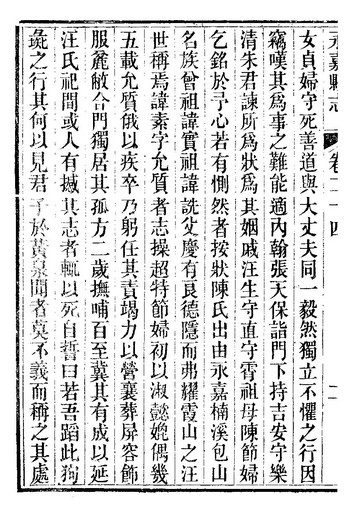 永嘉縣志 卷二十四
女貞婦守死善道與大丈夫同一毅然獨立不懼之行因
竊嘆其爲事之難能適內翰張天保詣門下持吉安守樂
清朱君諫所爲狀爲其姻戚汪生守直守霄祖母陳節婦
乞銘於予心若有惻然者按狀陳氏出由永嘉楠溪包山
名族曾祖諱實祖諱說父慶有良德隱而弗耀霞山之汪
世稱焉諱素字允質者志操超特節婦初以淑懿媲偶幾
五載允質俄以疾卒乃躬任其責竭力以營襄葬屏容飾
服麄敝合門獨居其孤方二歲撫哺百至冀其有成以延
汪氏祀間或人有撼其志者輒以死自誓曰若吾蹈此狗
彘之行其何以見君子於黃泉聞者莫不義而稱之其處